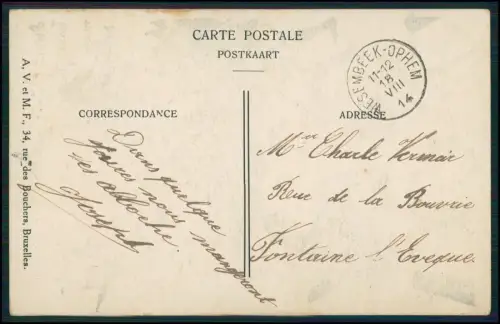 CARTE POSTALE
POSTKAART
WESEMBEEK-OPHEM
11-12
18
VIII
14
CORRESPONDANCE
ADRESSE
Dans quelque
jours nous mangeront
les alboche.
Joseph
Mr Charle Verinair
Rue de la Bouvrie
Fontaine l'Eveque
A. V. et M. F., 34, rue des Bouchers, Bruxelles.